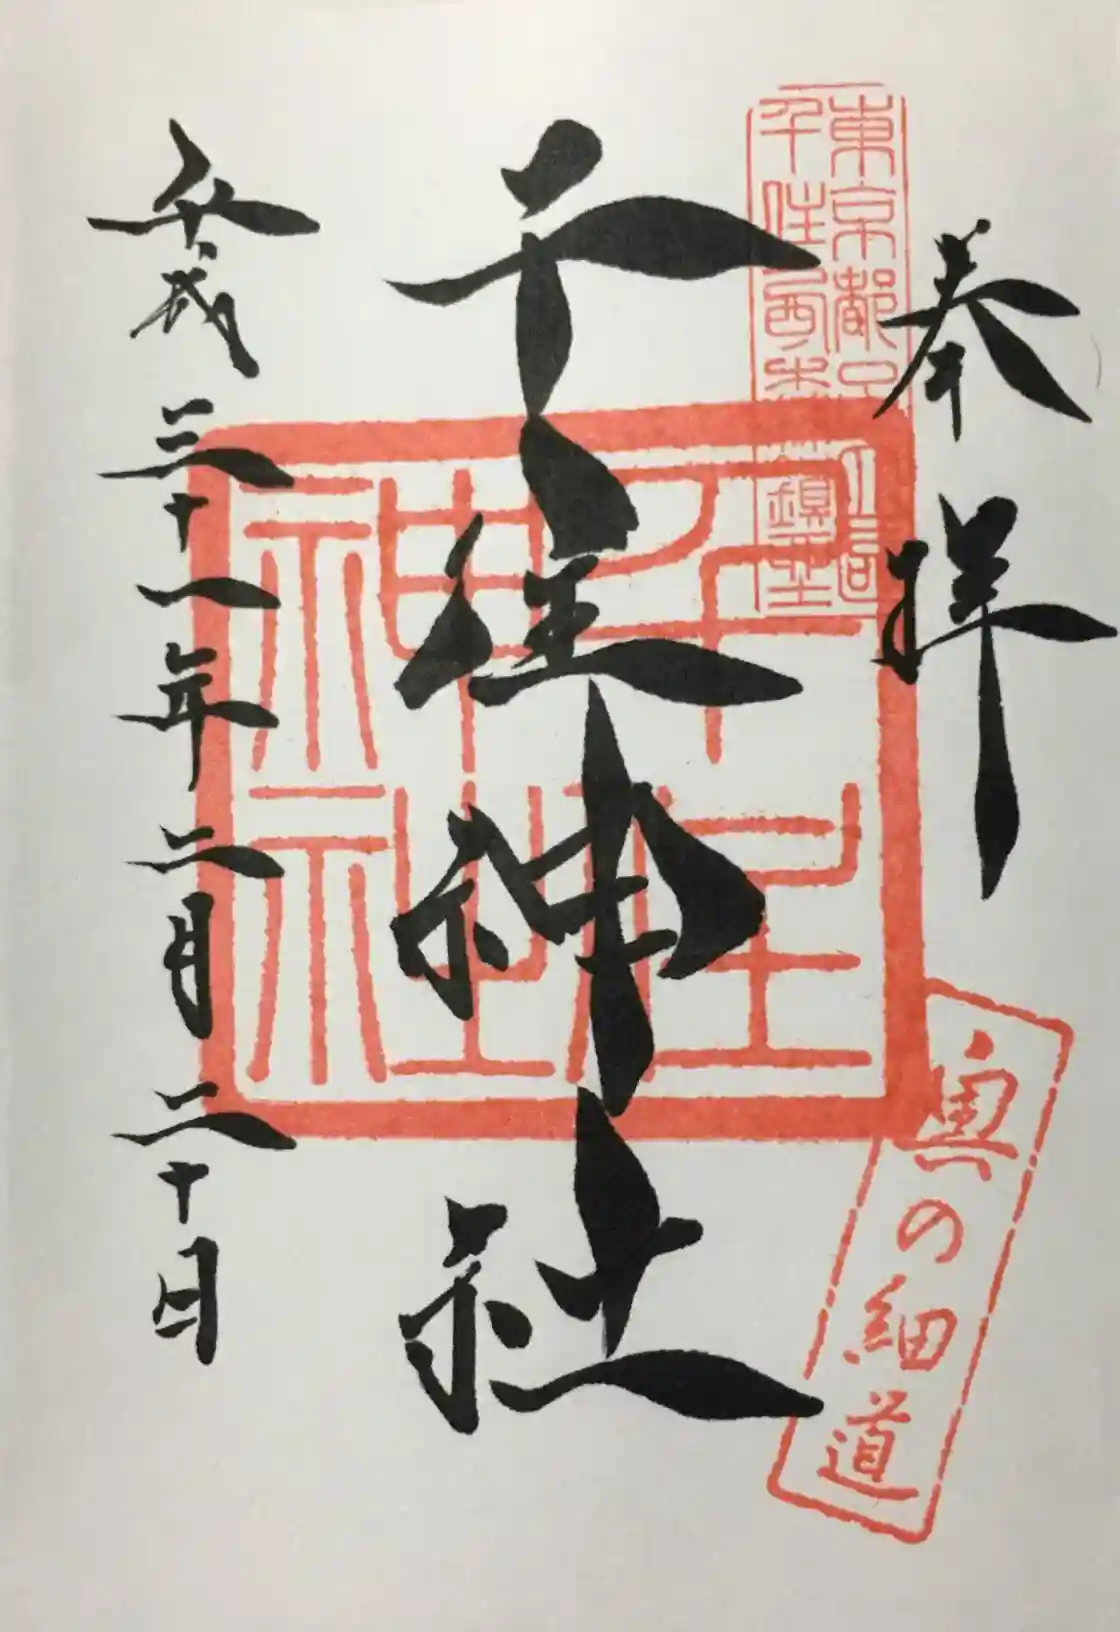 奉拝
東京都足立
千住西森鎮座
千住神社
千住
神社
平成三十一年二月二十日
奥の細道